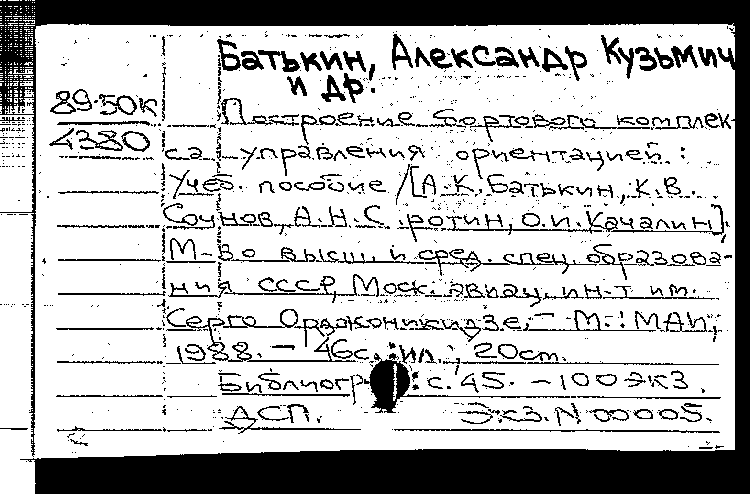 Батькин, Александр Кузьмич
и др.
89-50к
4380
Построение бортового комплек-
са управления ориентацией. :
Учеб. пособие / [А.К. Батькин, К.В.
А.Н. О.И. Качалин].
М-во высш. и сред. спец. образова-
ния СССР, Моск. авиац. ин-т им.
Серго Орджоникидзе. – М. : МАИ,
1988. – 46с. : ил. ; 20 см.
: с. 45. – 100 экз.
ДСП. Экз. N 00005.